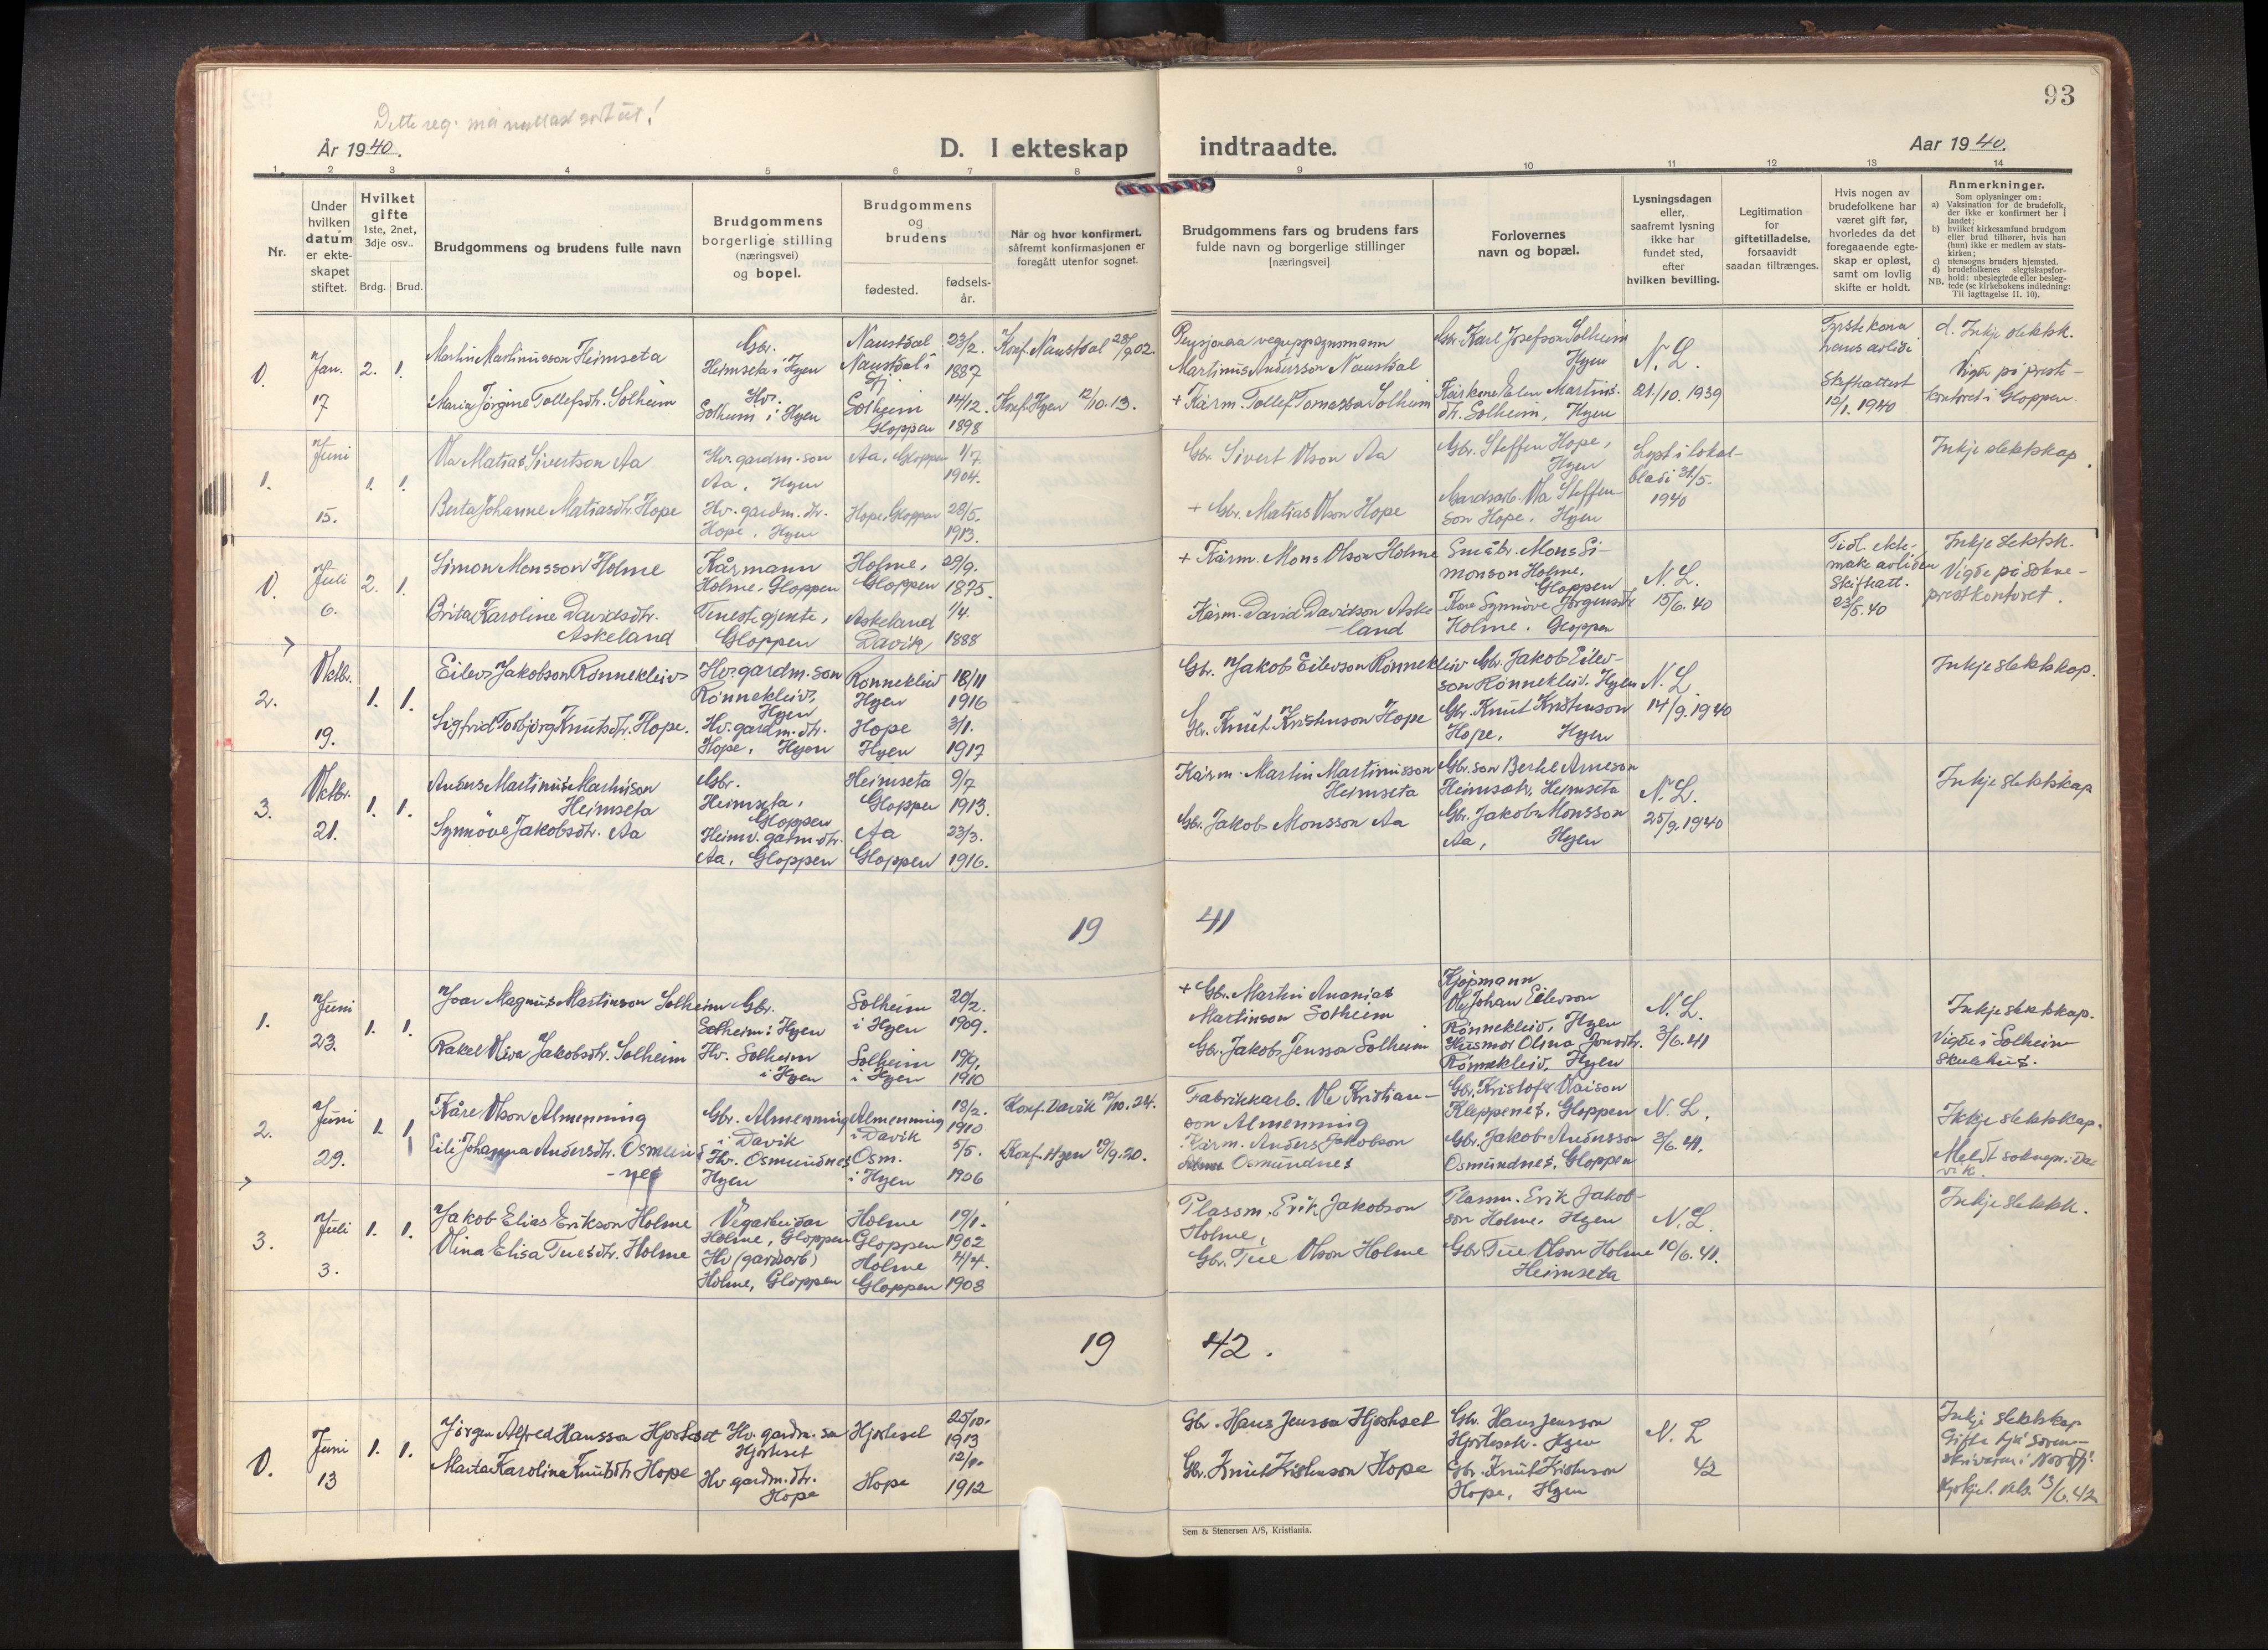 93
Dette reg.
År 1940.
D. I ekteskap
indtraadte.
Aar 1940.
1. 2 3 4 5 6 7 8 9 10 11 12 13 14
Nr.
Under
hvilken
datum
er ekte-
skapet
stiftet.
Hvilket
gifte
1ste, 2net,
3dje osv..
Brdg. Brud.
Brudgommens og brudens fulle navn
Brudgommens
borgerlige stilling
(næringsvei)
og bopel.
Brudgommens
og
brudens
fødested.
fødsels-
år.
Når og hvor konfirmert,
såfremt konfirmasjonen er
foregått utenfor sognet.
Brudgommens fars og brudens fars
fulde navn og borgerlige stillinger
[næringsvei]
Forlovernes
navn og bopæl.
Lysningsdagen
eller,
saafremt lysning
ikke har
fundet sted,
efter
hvilken bevilling.
Legitimation
for
giftetilladelse,
forsaavidt
saadan tiltrænges.
Hvis nogen av
brudefolkene har
været gift før,
hvorledes da det
foregaaende egte-
skap er opløst,
samt om lovlig
skifte er holdt.
Anmerkninger.
Som oplysninger om:
a) Vaksination for de brudefolk,
der ikke er konfirmert her i
landet;
b) hvilket kirkesamfund brudgom
eller brud tilhører, hvis han
(hun) ikke er medlem av stats-
kirken;
c) utensogns bruders hjemsted.
d) brudefolkenes slegtskapsfor-
hold: ubeslegtede eller besleg-
NB. tede (se kirkebokens indledning:
Til iagttagelse II. 10).
0.
Jan.
17
2. 1.
Martin Martinusson Heimseta
Maria Jørgine Tollefsdtr. Solheim
Gbr.
Heimseta i Hyen
Hv.
Solheim i Hyen
Naustdal
Naustdal i
Sfj.
Solheim
Gloppen
23/2.
1887
14/12.
1898
Konf. Naustdal 28/9 02.
Konf. Hyen 12/10. 13.
Martinus Andersson Naustdal
+ Kårm. Tollef Tomasson Solheim
Gbr. Karl Josefson Solheim
Hyen
Kårkone Elen Martins-
dtr. Solheim, Hyen
N. L.
21/10. 1939
Fyrste kona
hans avlidi
Skifteattest
12/1. 1940
d. Inkje slektsk.
Vigde på prest-
kontoret i Gloppen.
1.
Juni
15.
1. 1.
Ola Matias Sivertson Aa
Berta Johanne Matiasdtr. Hope
Hv. gardm. son
Aa, Hyen
Hv. gardm. dtr.
Hope, Hyen
Aa, Gloppen
Hope, Gloppen
1/7
1904.
28/5.
1913.
Gbr. Sivert Olson Aa
+ Gbr. Matias Olson Hope
Gbr. Steffen Hope,
Hyen
Gardsarb. Ola Steffen-
son Hope, Hyen
Lyst i lokal-
bladi 31/5.
1940
Inkje slektskap.
0.
Juli
6.
2. 1.
Simon Monsson Holme
Brita Karoline Davidsdtr.
Askeland
Kårmann
Holme, Gloppen
Tenestegjente,
Gloppen
Holme,
Gloppen
Askeland
Davik
29/9.
1875.
1/4.
1888
+ Kårm. Mons Olson Holme
Kårm. David Davidson Aske-
land
Småbr. Mons Si-
monson Holme,
Gloppen
Kone Synnöve Jørgensdtr
Holme, Gloppen
N. L.
15/6. 40
Tidl. ekte-
make avliden
Skifteatt.
23/5. 40
Inkje slektsk.
Vigde på sokne-
prestkontoret.
2.
Oktbr.
19.
1. 1.
Eilev Jakobson Rønnekleiv
Sigfrid Torbjørg Knutsdtr. Hope.
Hv. gardm. son
Rønnekleiv,
Hyen
Hv. gardm. dtr.
Hope, Hyen
Rønnekleiv
Hyen
Hope
Hyen
18/11
1916
3/1.
1917
Gbr. Jakob Eilevson Rønnekleiv
Gbr. Knut Kristenson Hope
Gbr. Jakob Eilev-
son Rønnekleiv. Hyen
Gbr. Knut Kristenson
Hope, Hyen
N. L.
14/9. 1940
Inkje slektskap.
3.
Oktbr.
21.
1. 1.
Anders Martinus Martinson
Heimseta
Synnöve Jakobsdtr. Aa
Gbr.
Heimseta,
Gloppen
Heimv. gardm. dtr.
Aa, Gloppen
Heimseta
Gloppen
Aa
Gloppen
9/7
1913.
23/3.
1916.
Kårm. Martin Martinusson
Heimseta
Gbr. Jakob Monsson Aa
Gbr. son Bertel Arneson
Heimsetr, Heimseta
Gbr. Jakob Monsson
Aa, Hyen
N. L.
25/9. 1940
Inkje slektskap
19 41
1.
Juni
23.
1. 1.
Ivar Magnus Martinson Solheim
Rakel Oliva Jakobsdtr. Solheim
Gbr.
Solheim i Hyen
Hv. Solheim
i Hyen
Solheim
i Hyen
Solheim
i Hyen
20/2.
1909.
19/9.
1910
+ Gbr. Martin Ananias
Martinson Solheim
Gbr. Jakob Jensson Solheim
Kjøpmann
Ole Johan Eilevson
Rønnekleiv, Hyen
Husmor Olina Jonsdtr.
Rønnekleiv, Hyen
N. L.
3/6. 41
Inkje slektskap.
Vigde i Solheim
skulehus.
2.
Juni
29.
1. 1.
Kåre Olson Almenning
Eili Johanna Andersdtr. Osmund
-nes
Gbr. Almenning
i Davik
Hv. Osmundnes
Hyen
Almenning
i Davik
Osm.
i Hyen
18/2.
1910
5/5.
1906
Konf. Davik 12/10. 24.
Konf. Hyen 19/9. 20.
Fabrikkarb. Ole Kristian-
son Almenning
Kårm. Anders Jakobson
Osmundnes
Gbr. Kristofer Olaison
Kleppenes, Gloppen
Gbr. Jakob Andersson
Osmundnes, Gloppen
N. L.
3/6. 41.
Ikkje slektskap.
Meldt soknepr. Da-
vik.
3.
Juli
3.
1. 1.
Jakob Elias Erikson Holme
Olina Elisa Tuesdtr. Holme
Vegarbeidar
Holme, Gloppen
Hv (gardsarb)
Holme, Gloppen
Holme
Gloppen
Holme
Gloppen
19/1.
1902
14/4.
1908
Plassm. Erik Jakobson
Holme,
Gbr. Tue Olson Holme
Plassm. Erik Jakob-
son Holme, Hyen
Gbr Tue Olson Holme
Heimseta
N. L.
10/6. 41.
Inkje slektsk.
19 42.
0.
Juni
13
1. 1.
Jørgen Alfred Hansson Hjorteset
Marta Karolina Knutsdtr Hope
Hv. gardm. son
Hjorteset
Hv. gardm. dtr.
Hope
Hjorteset
Hope
25/10.
1913
1912
Gbr. Hans Jensson Hjorteset
Gbr. Knut Kristenson Hope
Gbr. Hans Jensson
Hjorteset. Hyen
Gbr. Knut Kristenson
Hope, Hyen
N. L
42
Inkje slektskap
Gifte hjå soren-
skrivaren i Nordfj.
13/6. 42
Sem & Stenersen A/S, Kristiania.